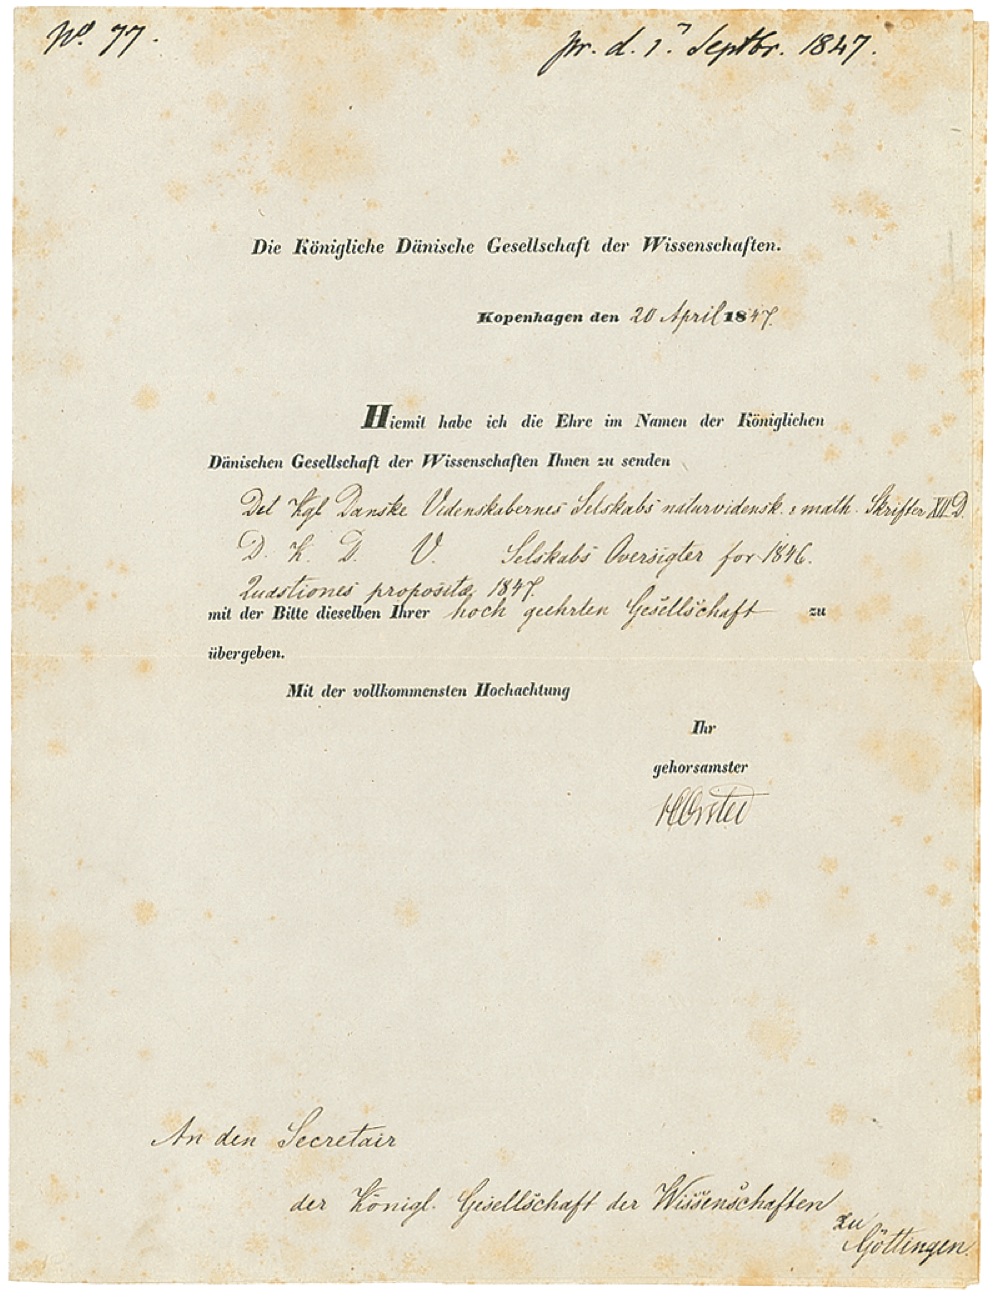 No. 77.
pr. d. 1. Septbr. 1847.
Die Königliche Dänische Gesellschaft der Wissenschaften.
Kopenhagen den 20 April 1847.
Hiemit habe ich die Ehre im Namen der Königlichen
Dänischen Gesellschaft der Wissenschaften Ihnen zu senden
Det Kgl Danske Videnskabernes Selskabs naturvidensk. math. Skrifter XII D.
D. K. D. V. Selskabs Oversigter for 1846.
Quæstiones propositæ 1847.
mit der Bitte dieselben Ihrer hoch geehrten Gesellschaft zu
übergeben.
Mit der vollkommensten Hochachtung
Ihr
gehorsamster
HCØrsted
An den Secretair
der Königl. Gesellschaft der Wissenschaften
zu
Göttingen.